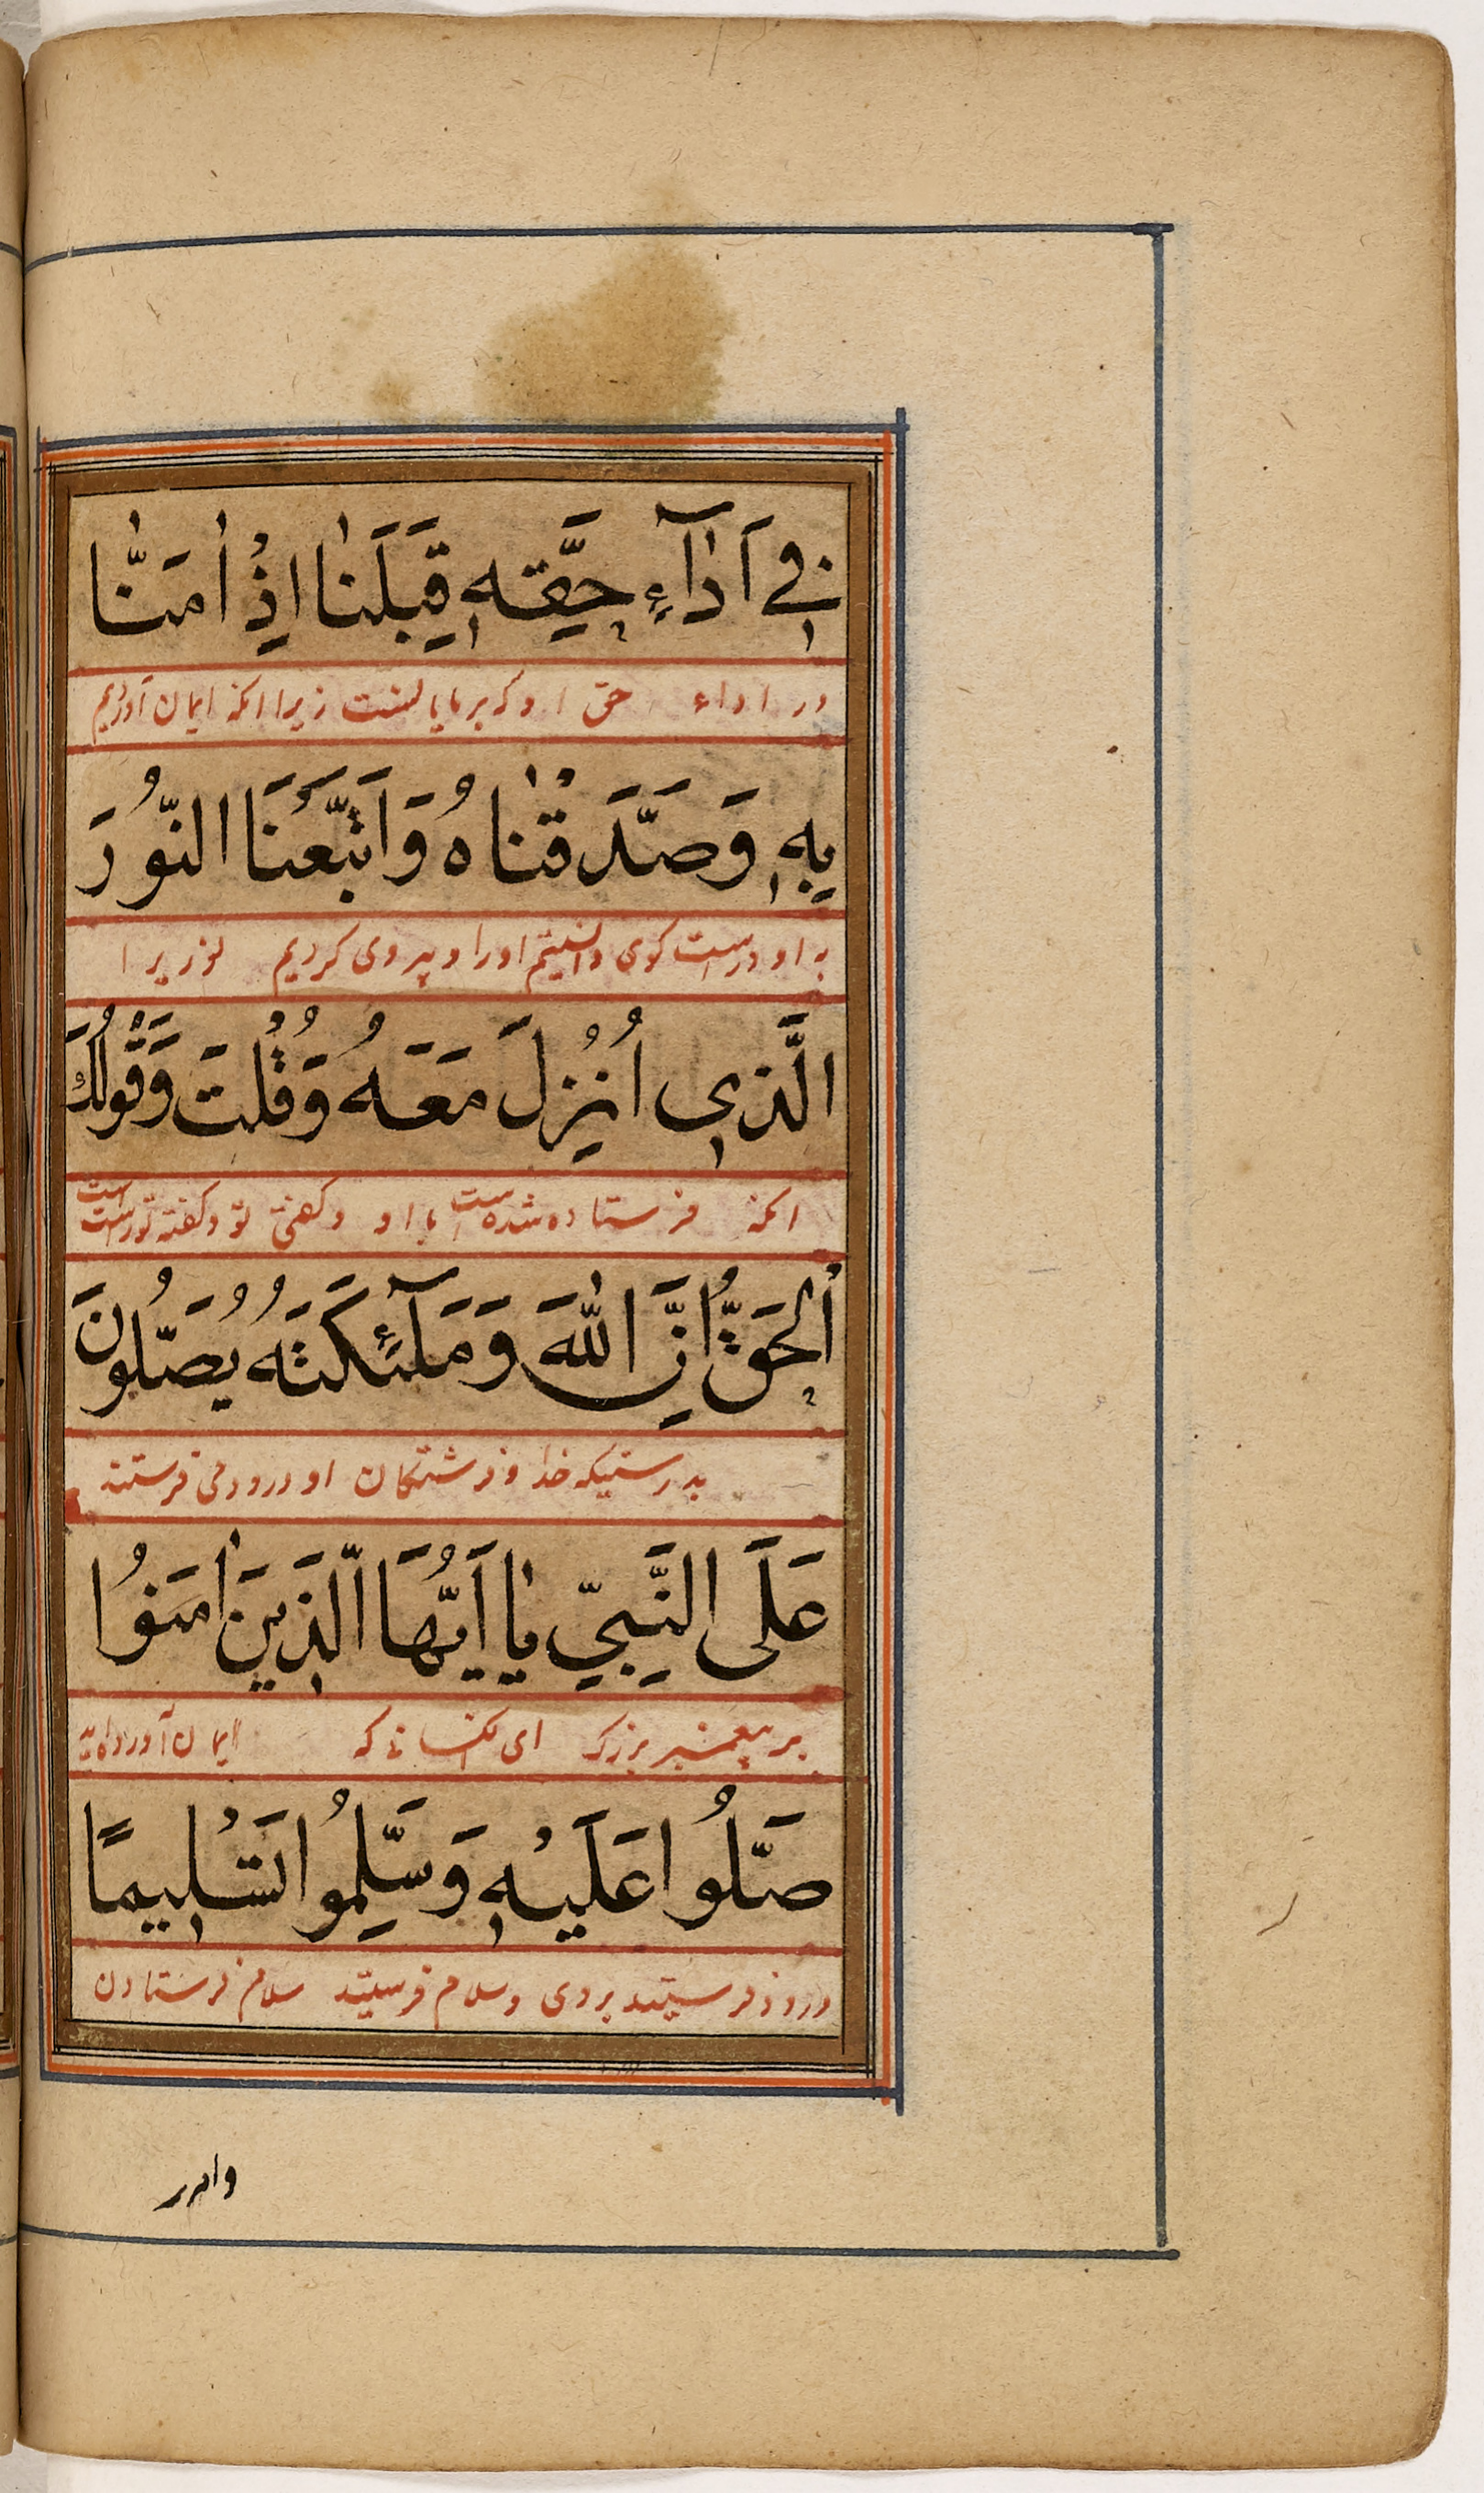 فِي اَدَآءِ حَقِّهِ قِبَلَنَا اِذْ اٰمَنَّا
در اداء حق او که بر ما یا لنست زیرا انکه ایمان آوردیم
بِهِ وَصَدَّقْنَاهُ وَاتَّبَعْنَا النُّورَ
به او و راست کوی دانستیم او را و پیروی کردیم نوریرا
الَّذِي اُنْزِلَ مَعَهُ وَقُلْتَ وَقَوْلُكَ
انکه فرستاده شده است با او و کفتی تو و کفته تو راست است
اَلْحَقُّ اِنَّ اللّٰهَ وَمَلٰٓئِكَتَهُ يُصَلُّونَ
بدرستیکه خدا و فرشتکان او درود می فرستند
عَلَى النَّبِيِّ يَا اَيُّهَا الَّذِينَ اٰمَنُوا
بر پیغمبر بزرک ای انکسانی که ایمان آورده‌اید
صَلُّوا عَلَيْهِ وَسَلِّمُوا تَسْلِيمًا
درود فرستید بر وی و سلام فرستید سلام فرستادن